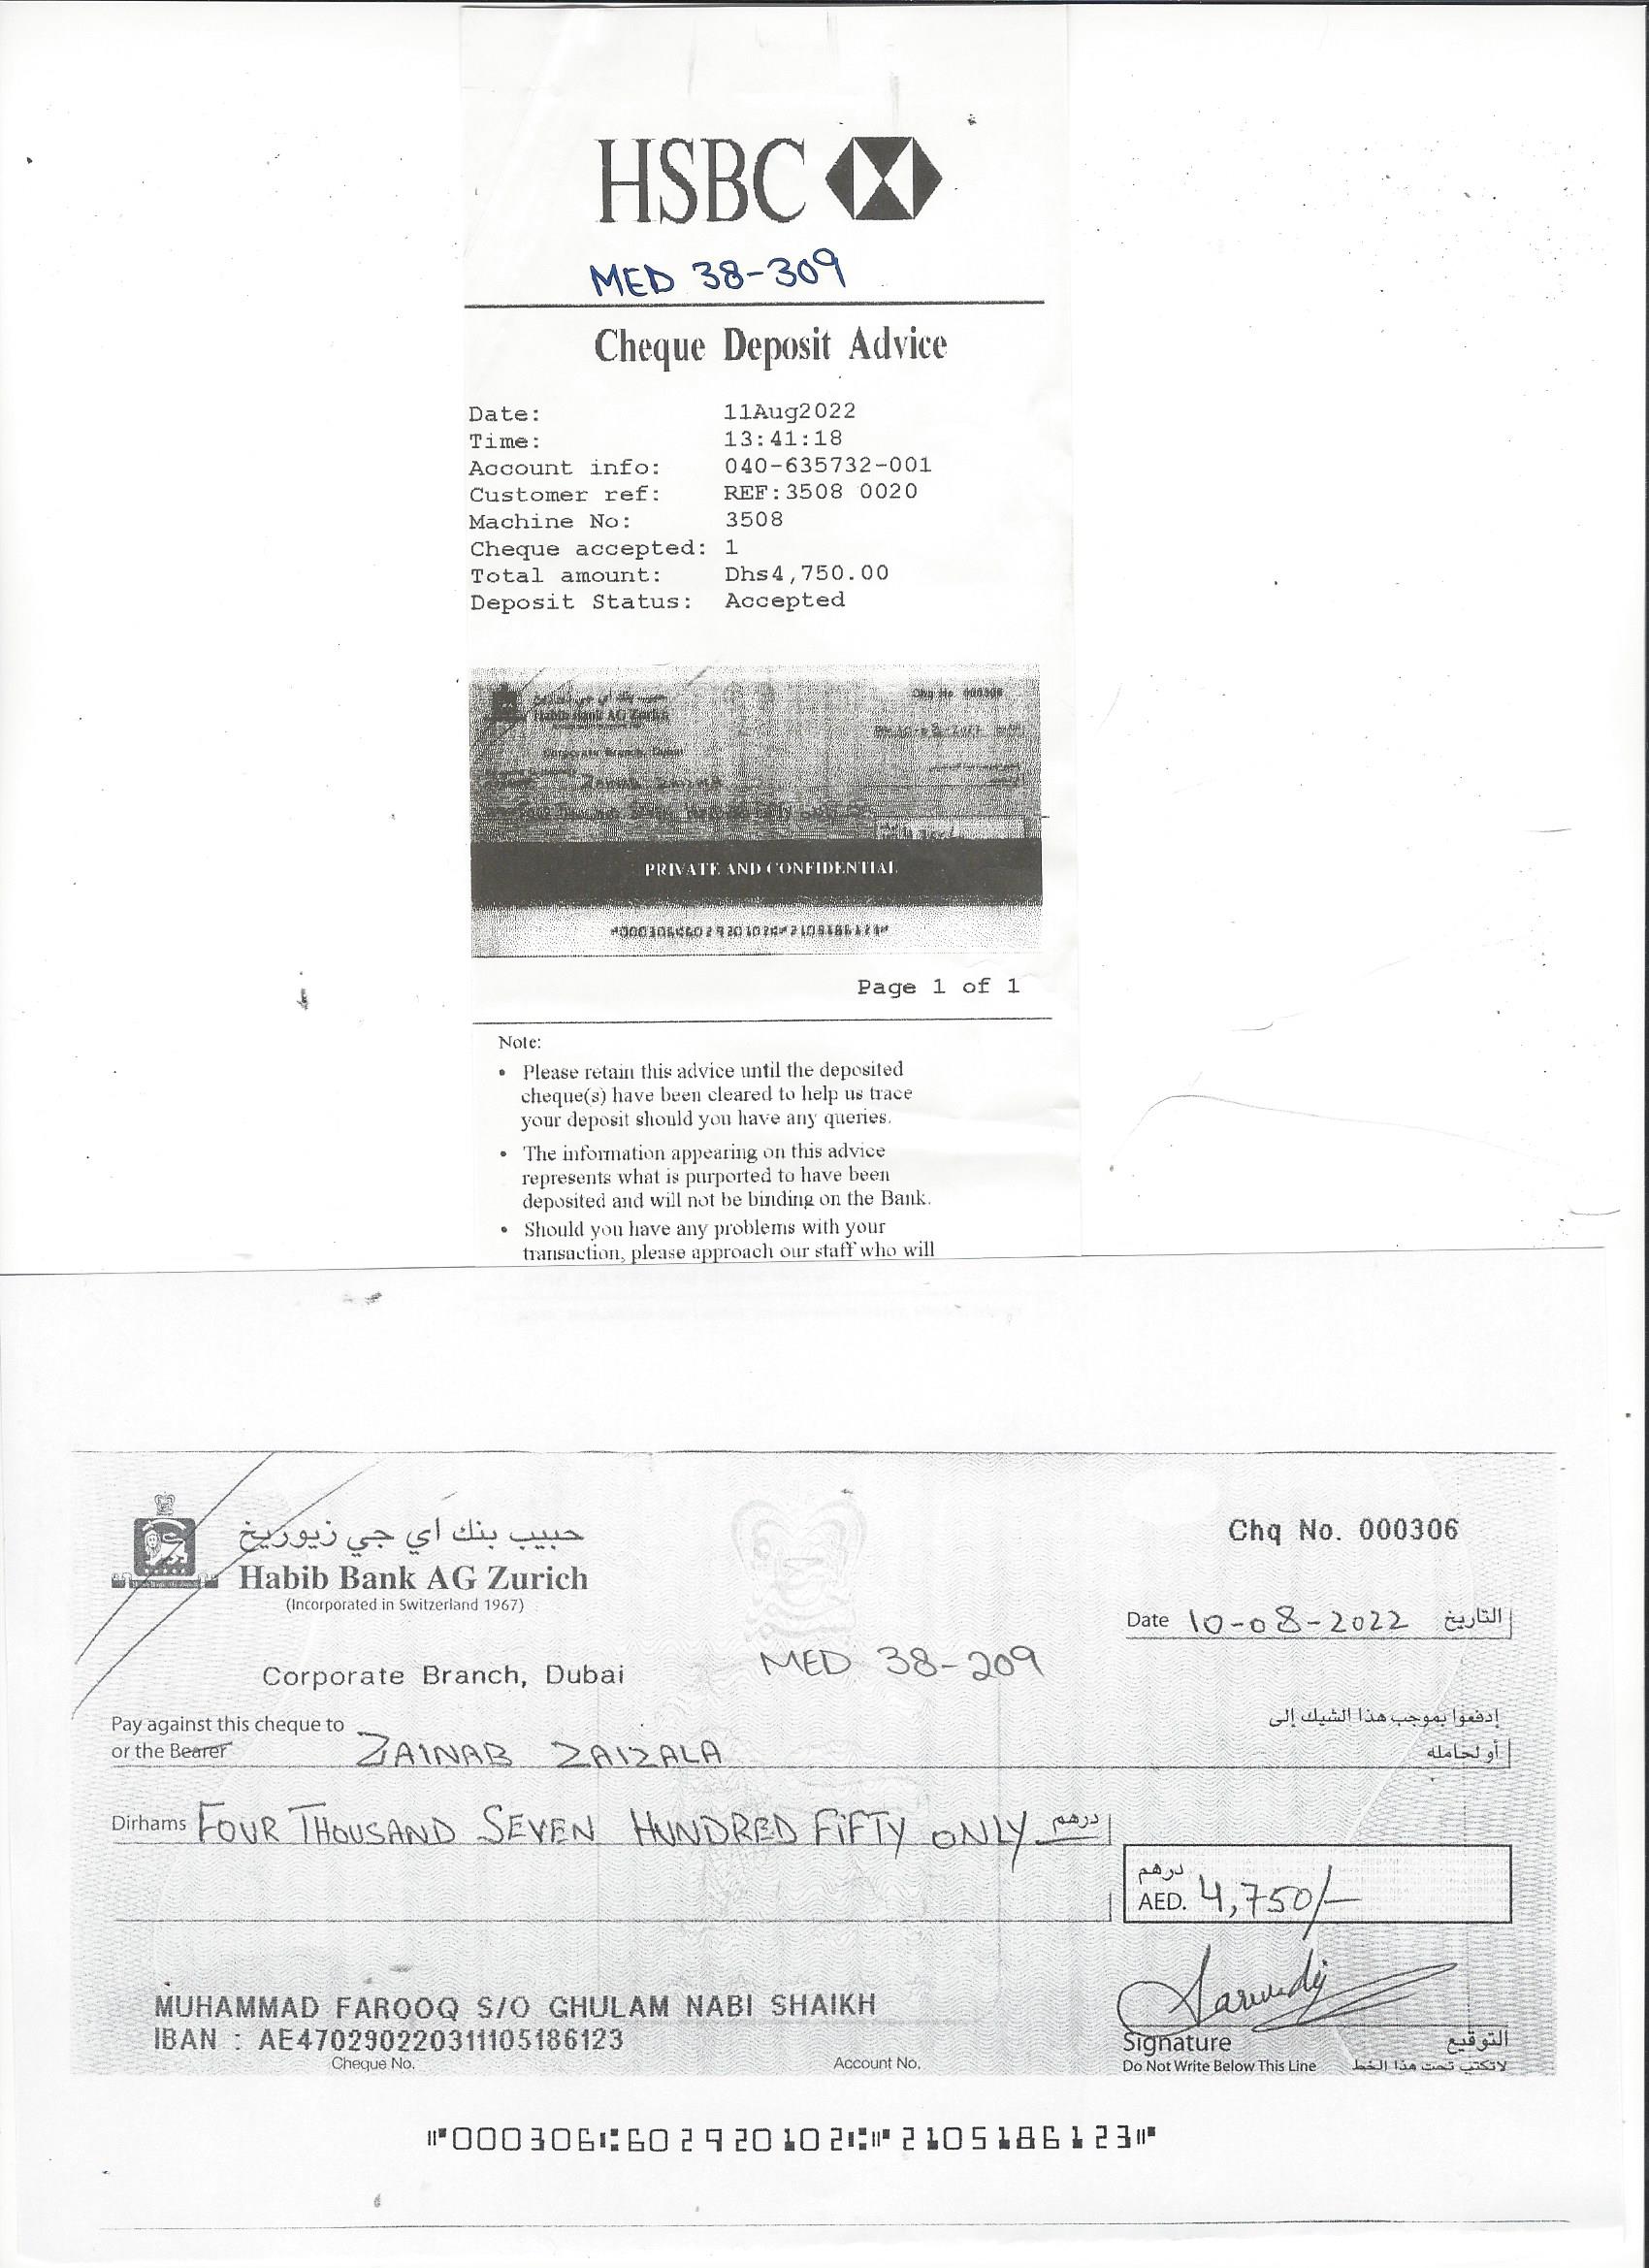 HSBC
MED 38-309
Cheque Deposit Advice
Date: 11Aug2022
Time: 13:41:18
Account info: 040-635732-001
Customer ref: REF:3508 0020
Machine No: 3508
Cheque accepted: 1
Total amount: Dhs4,750.00
Deposit Status: Accepted
Habib Bank AG Zurich
Chq No. 000306
Corporate Branch, Dubai
PRIVATE AND CONFIDENTIAL
Page 1 of 1
Note:
• Please retain this advice until the deposited
cheque(s) have been cleared to help us trace
your deposit should you have any queries.
• The information appearing on this advice
represents what is purported to have been
deposited and will not be binding on the Bank.
• Should you have any problems with your
transaction, please approach our staff who will
حبيب بنك اي جي زيوريخ
Habib Bank AG Zurich
(Incorporated in Switzerland 1967)
Chq No. 000306
Date 10-08-2022 التاريخ
Corporate Branch, Dubai
MED 38-209
Pay against this cheque to إدفعوا بموجب هذا الشيك إلى
or the Bearer ZAINAB ZAIZALA أو لحامله
Dirhams FOUR THOUSAND SEVEN HUNDRED FIFTY ONLY درهم
درهم
AED. 4,750/-
MUHAMMAD FAROOQ S/O GHULAM NABI SHAIKH
IBAN : AE470290220311105186123
Signature التوقيع
Cheque No. Account No. Do Not Write Below This Line لاتكتب تحت هذا الخط
⑈000306⑆602920102⑆⑈2105186123⑈